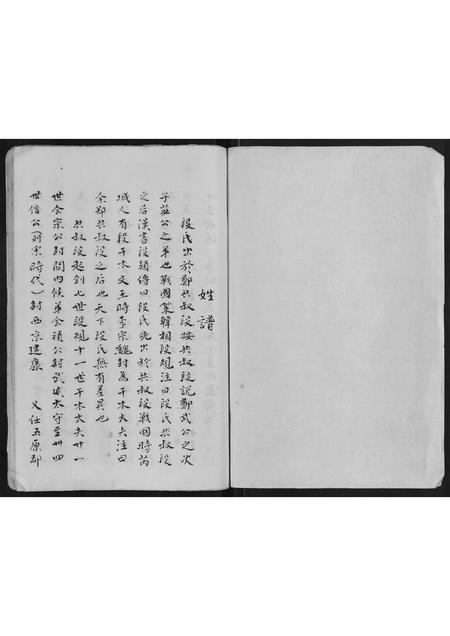 姓譜
段氏出於鄭共叔段按共叔段說鄭武公之次
子莊公之弟也戰國策韓相段規注曰段氏共叔段
之后漢書段熲傳曰段氏先出於共叔段戰國時芮
城人有段干木文王時李宗魏封為干木大夫注曰
余鄭共叔段之后也天下段氏無有差異也
共叔段起到七世段規十一世干木大夫廿一
世會宗公封關內候弟會禎公封武威太守至卅四
世信公(前宋時代)封西京建康 又仕五原郡